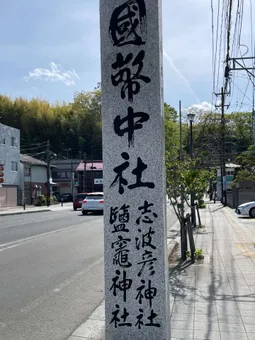 國幣中社
志波彦神社
鹽竈神社